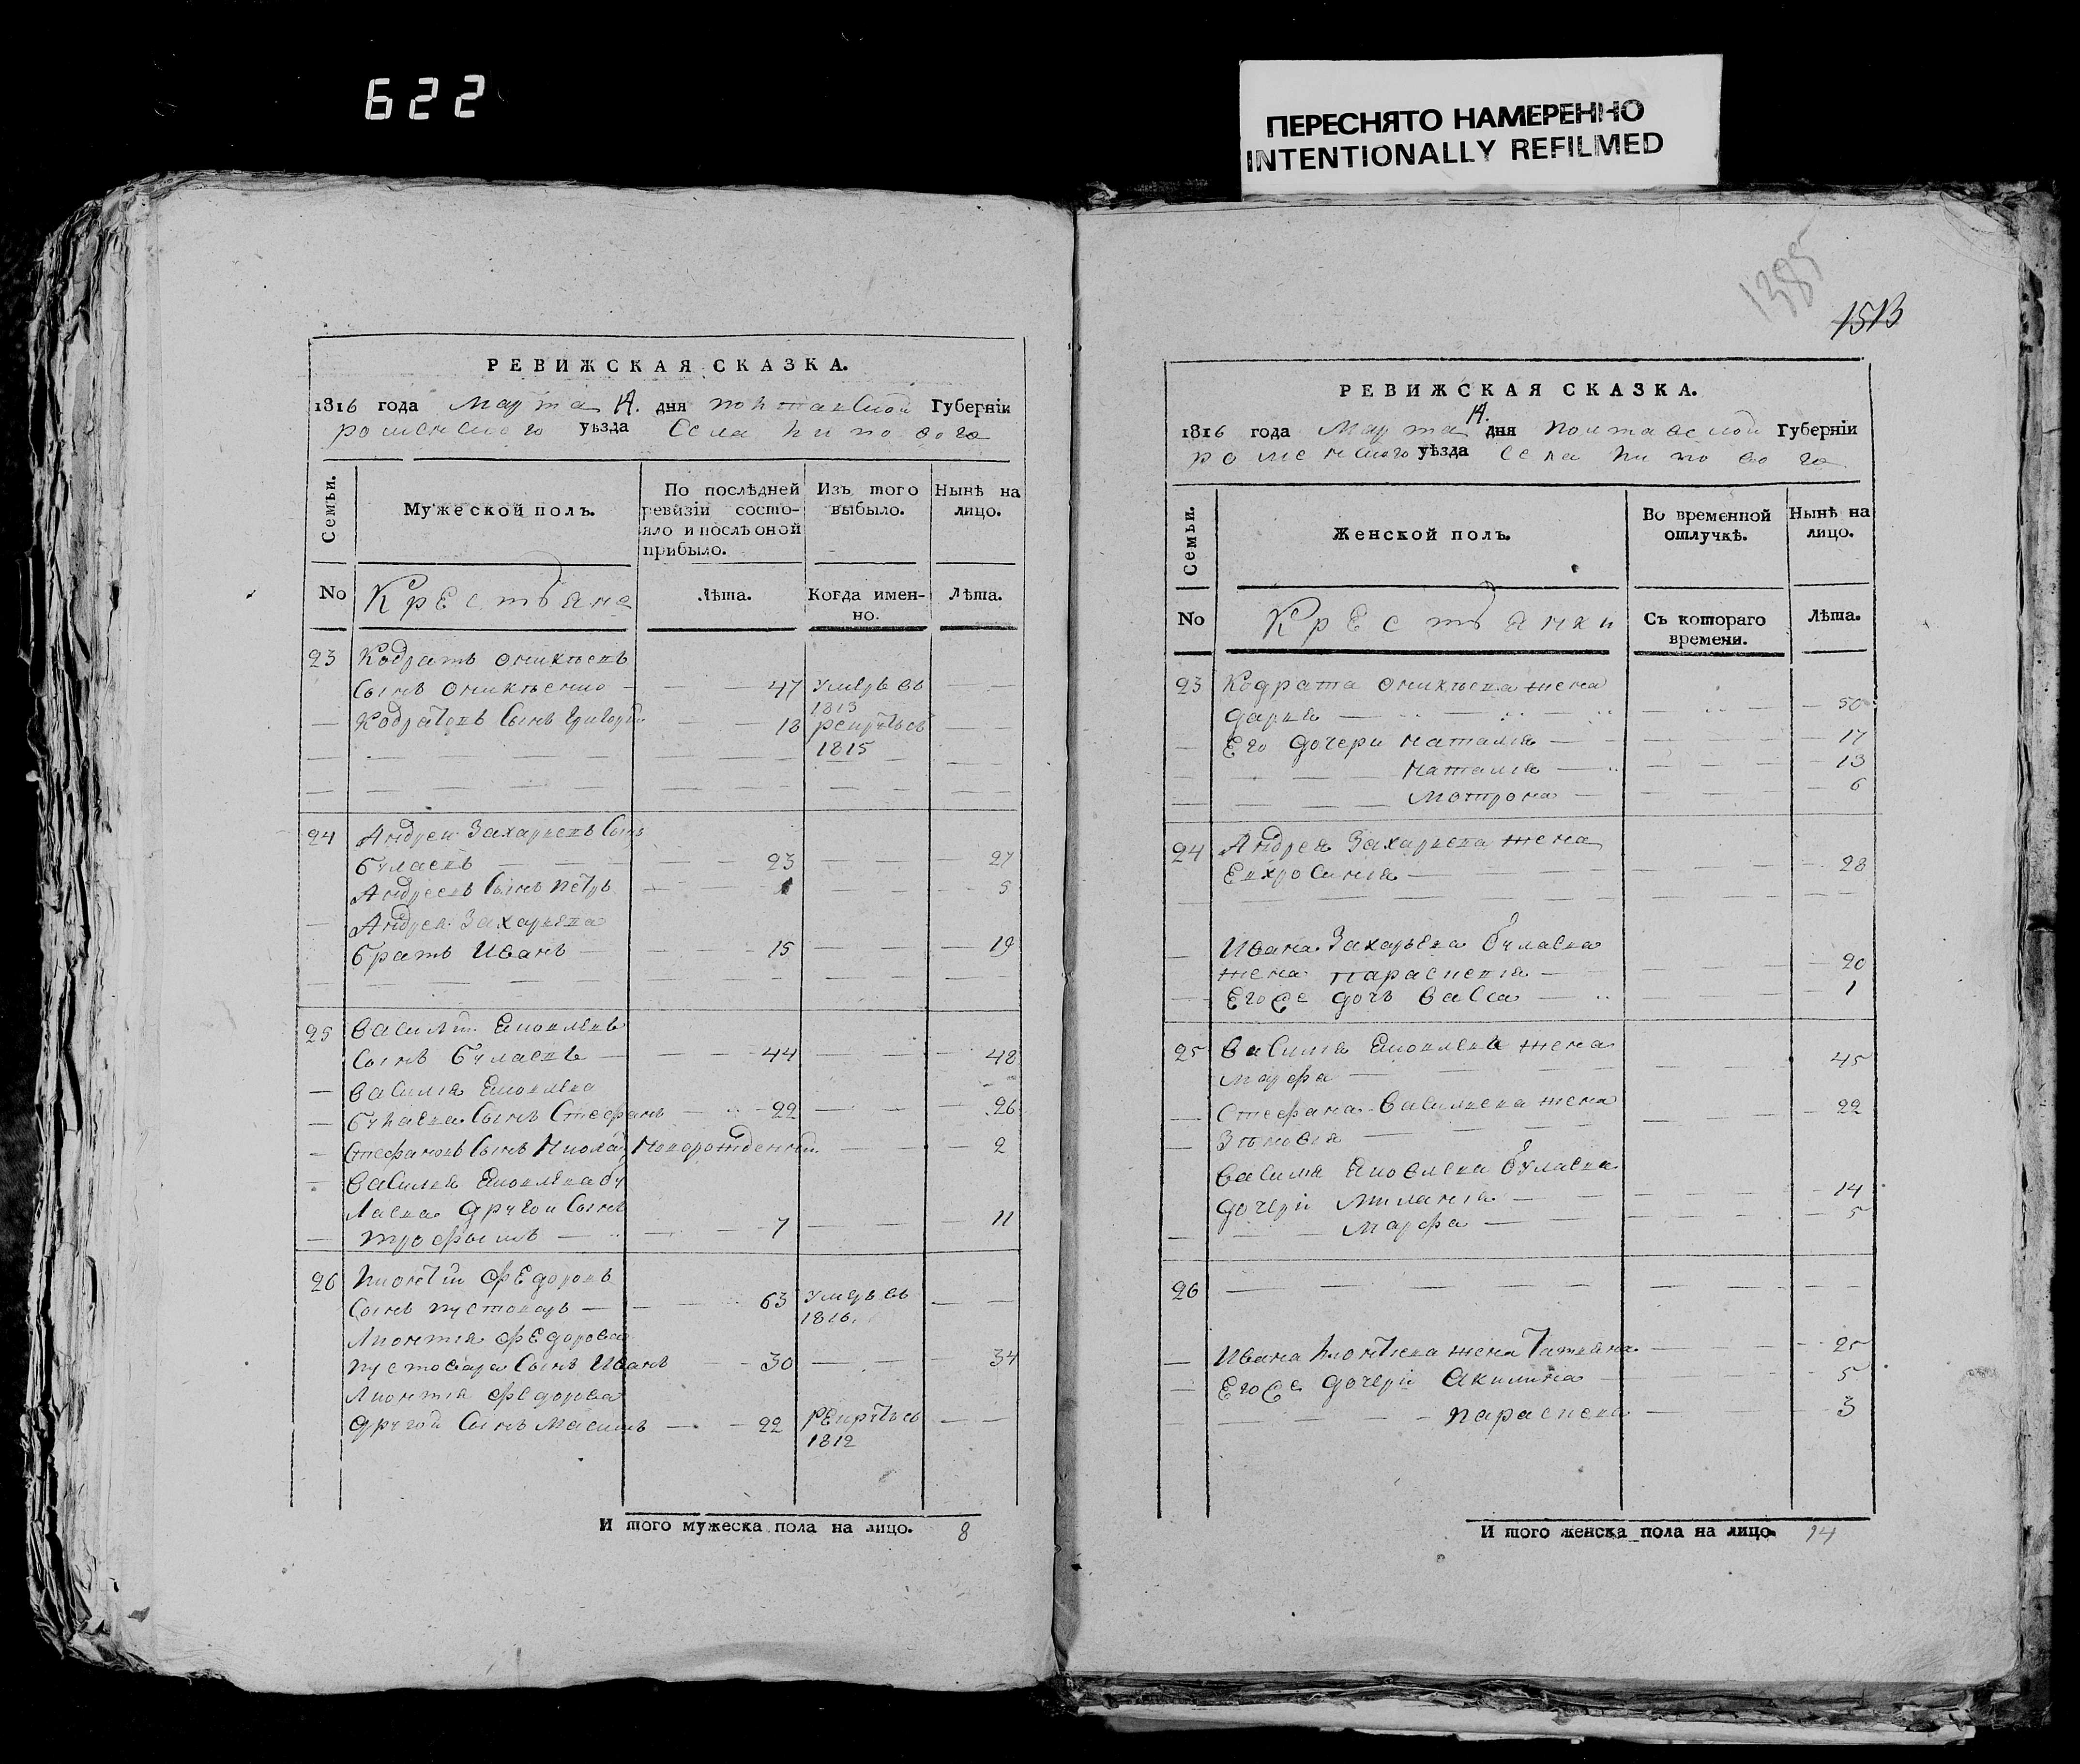 622
ПЕРЕСНЯТО НАМЕРЕННО
INTENTIONALLY REFILMED
РЕВИЖСКАЯ СКАЗКА.
1816 года Марта 14. дня Полтавской Губерніи
роменского уѣзда Села Липового
Семьи.
Мужеской полъ.
По послѣдней ревизіи состояло и послѣ оной прибыло.
Изъ того выбыло.
Нынѣ на лицо.
No
Крестьяне
Лѣта.
Когда именно.
Лѣта.
23 Кодратъ
сынъ — 47 умеръ въ
1813
— Кодратовъ сынъ Григорій 18 рекрутъ съ
1815
24 Андрей Захарьевъ сынъ
Булаевъ 23 27
Андреевъ сынъ Петръ 1 5
Андрея Захарьева
братъ Иванъ — 15 19
25 Василій Яковлевъ
сынъ Булаевъ — 44 48
— Василія Яковлева
— Булаева сынъ Стефанъ 22 26
— Стефановъ сынъ Николай Новорожденный 2
— Василія Яковлева бу
лаева другой сынъ
— трофимъ — 7 11
26 Лионтій Федоровъ
сынъ пустовар — 63 умеръ въ
1816.
Лионтія Федорова
пустовара сынъ Иванъ 30 34
Лионтія Федорова
другой сынъ Максимъ 22 рекрутъ съ
1812
И того мужеска пола на лицо. 8
1385
1513
РЕВИЖСКАЯ СКАЗКА.
1816 года Марта 14. дня Полтавской Губерніи
роменского уѣзда села Липового
Семьи.
Женской полъ.
Во временной отлучкѣ.
Нынѣ на лицо.
No
Крестьянки
Съ котораго времени.
Лѣта.
23 Кодрата жена
дарія — 50
— Его дочери наталія — 17
наталія — 13
Мотрона — 6
24 Андрея Захарьева жена
Евхросинія — 28
— Ивана Захарьева Булаева
жена параскевія — 20
Егоже дочь васса — 1
25 Василія Яковлева жена
Марфа — 45
— Стефана Васильева жена 22
— Зѣновія
Василія Яковлева Булаева
дочери Миланія — 14
— Марфа — 5
26
— Ивана Лионтіева жена Татіяна 25
— Егоже дочери Акилина 5
параскева 3
И того женска пола на лицо. 14